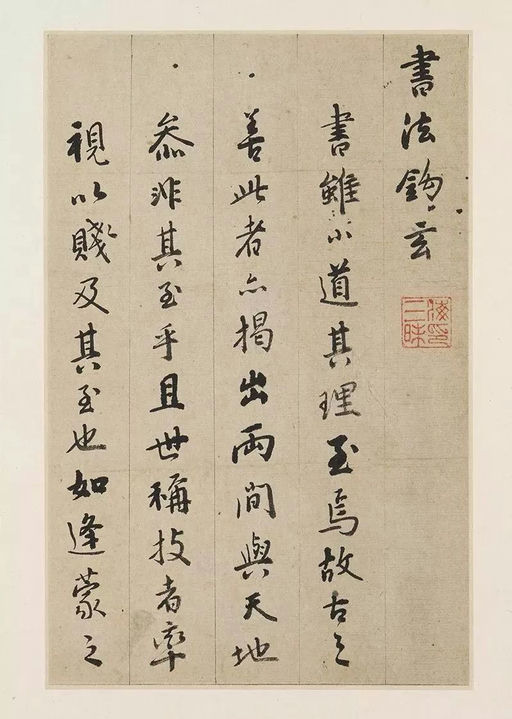 書法鈎玄
書雖小道其理至焉故古之
善此者亦揭出兩間與天地
叅非其至乎且世稱技者率
視以賤及其至也如逢蒙之
法印三昧